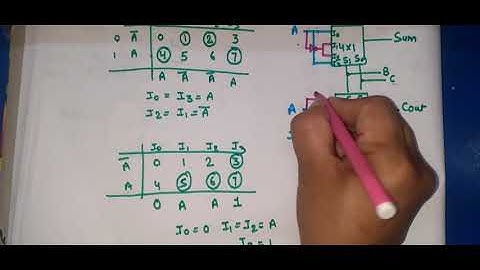 I₃
0 A̅ 0 1 2 3
1 A 4 5 6 7
A A̅ A̅ A
I₀ = I₃ = A
I₂ = I₁ = A̅
I₀ I₁ I₂ I₃
A̅ 0 1 2 3
A 4 5 6 7
0 A A 1
I₀=0 I₁=I₂=A
A
I₀
I₁ 4x1
S₁ S₀
Sum
B
C
A
Cout